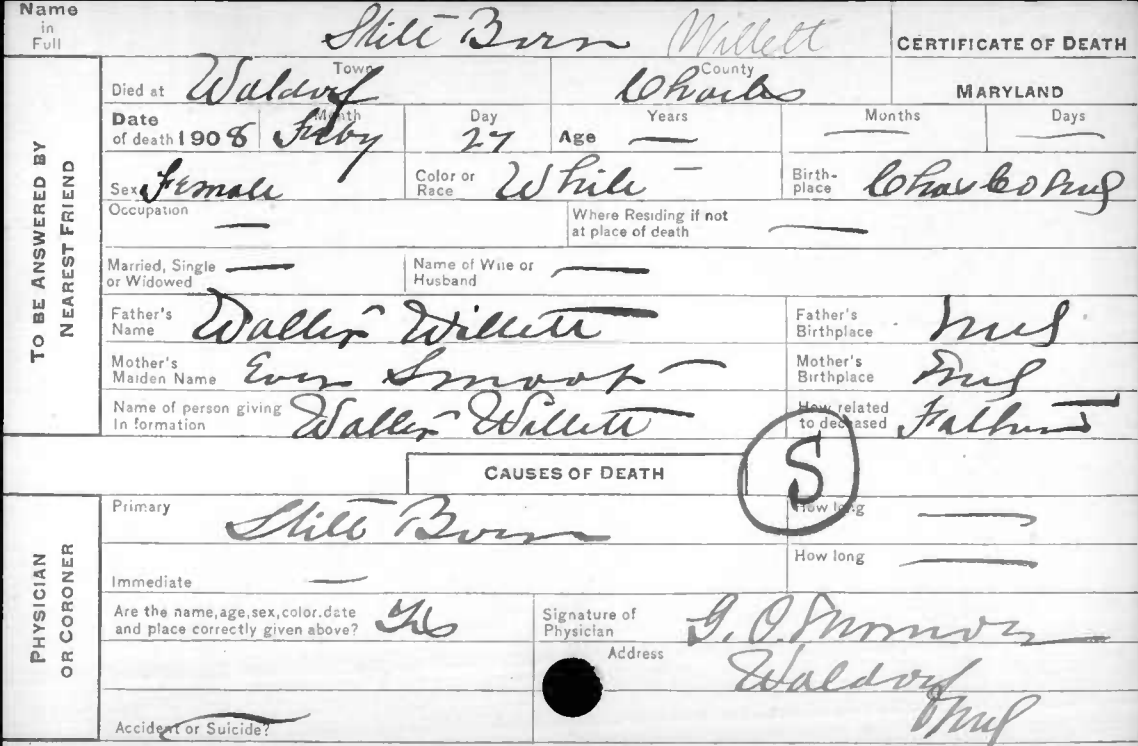 Name in Full Still Born Willett
CERTIFICATE OF DEATH
TO BE ANSWERED BY NEAREST FRIEND
Died at Waldorf Town Charles County MARYLAND
Date of death 1908 Month Feby Day 27 Age Years — Months — Days —
Sex Female Color or Race White Birth-place Charles Co Md
Occupation — Where Residing if not at place of death —
Married, Single or Widowed — Name of Wife or Husband —
Father's Name Walter Willett Father's Birthplace Md
Mother's Maiden Name Smoot Mother's Birthplace Md
Name of person giving In formation Walter Willett How related to deceased Father
CAUSES OF DEATH
S
PHYSICIAN OR CORONER
Primary Still Born How long —
Immediate — How long —
Are the name, age, sex, color. date and place correctly given above? Yes Signature of Physician G. O.
Address Waldorf
Md
Accident or Suicide? —